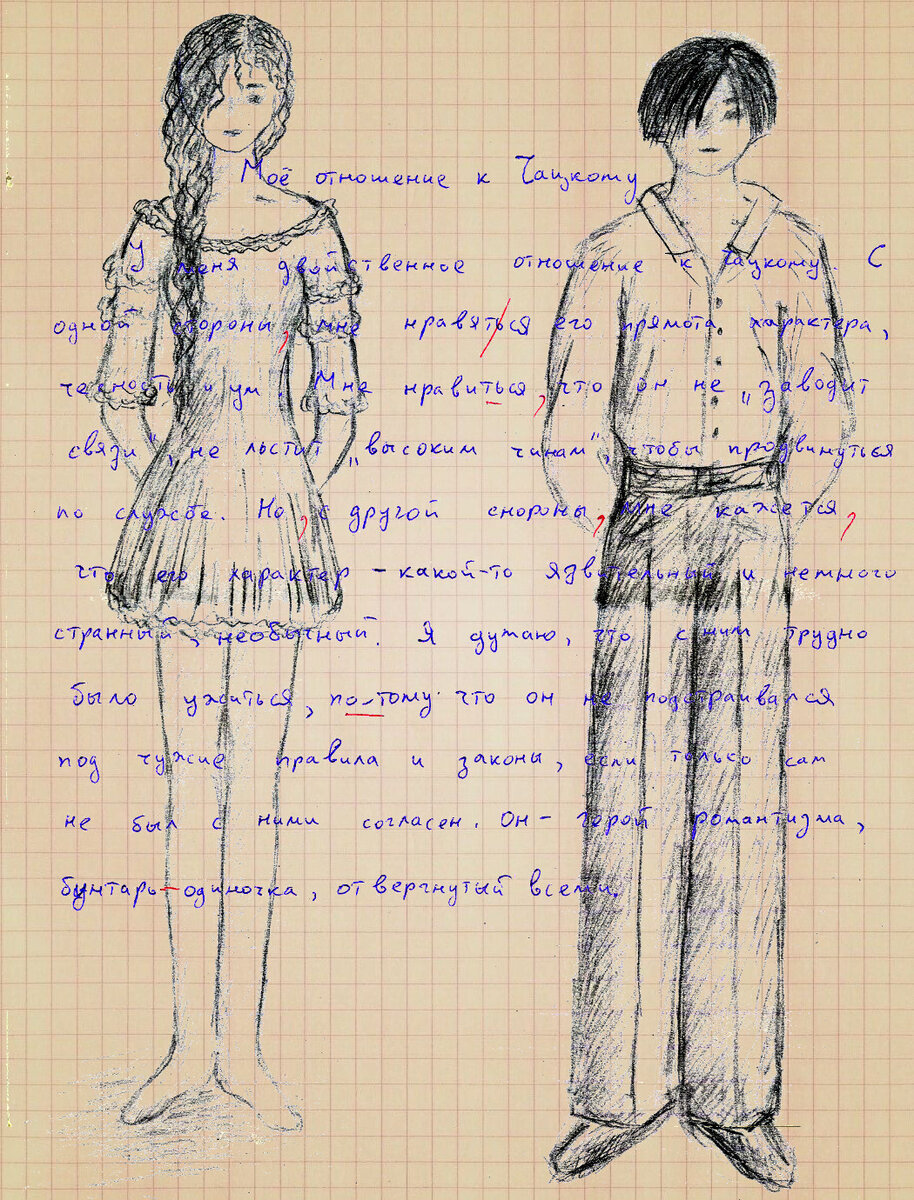 Моё отношение к Чацкому
У меня двойственное отношение к Чацкому. С
одной стороны, мне нравяться его прямота характера,
честность и ум. Мне нравиться, что он не „заводит
связи", не льстит „высоким чинам", чтобы продвинуться
по службе. Но, с другой стороны, мне кажется,
что его характер – какой-то язвительный и немного
странный, необычный. Я думаю, что с ним трудно
было ужиться, по-тому что он не подстраивался
под чужие правила и законы, если только сам
не был с ними согласен. Он – герой романтизма,
бунтарь-одиночка, отвергнутый всеми.